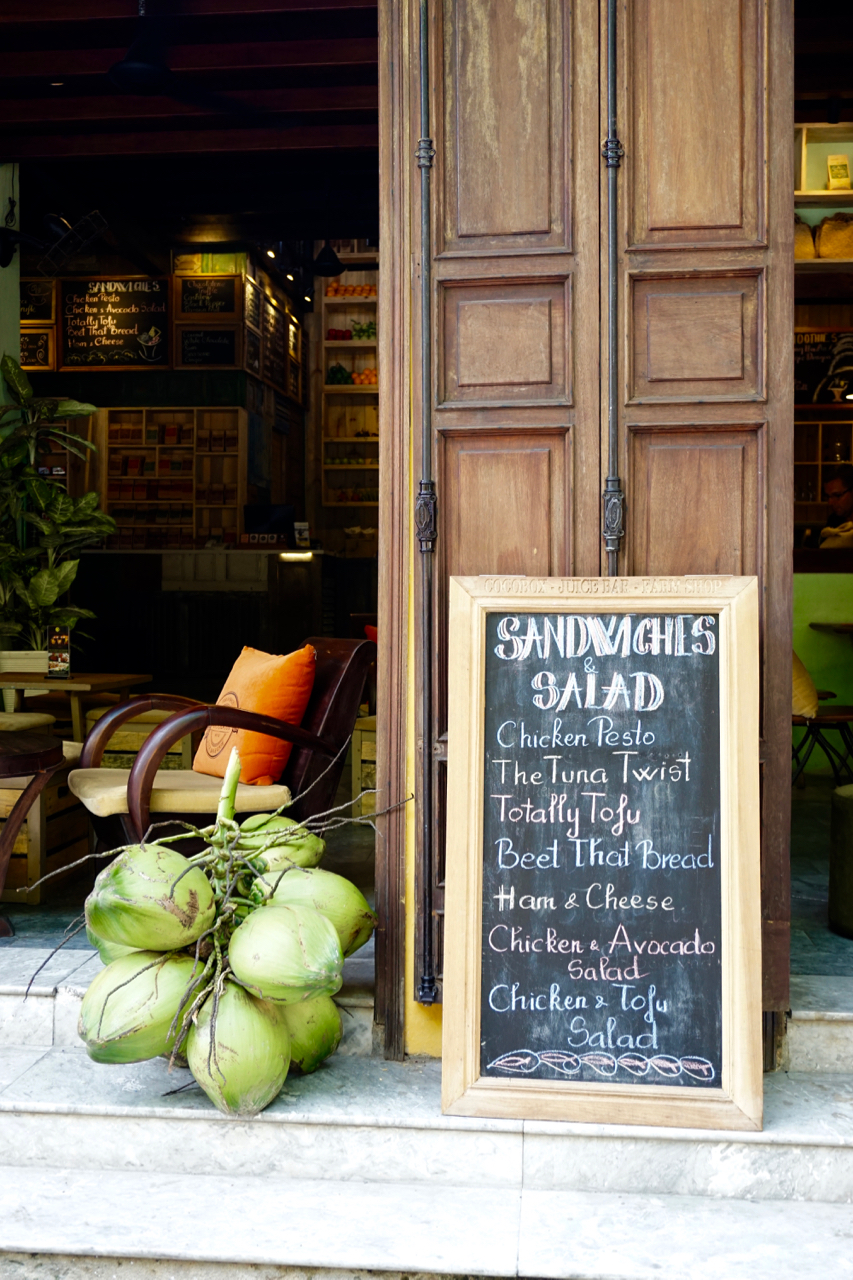 SANDWICHES
Chicken Pesto
Chicken & Avocado Salad
Totally Tofu
Beet That Bread
Ham & Cheese
COCOBOX · JUICE BAR · FARM SHOP
SANDWICHES
&
SALAD
Chicken Pesto
The Tuna Twist
Totally Tofu
Beet That Bread
Ham & Cheese
Chicken & Avocado
Salad
Chicken & Tofu
Salad